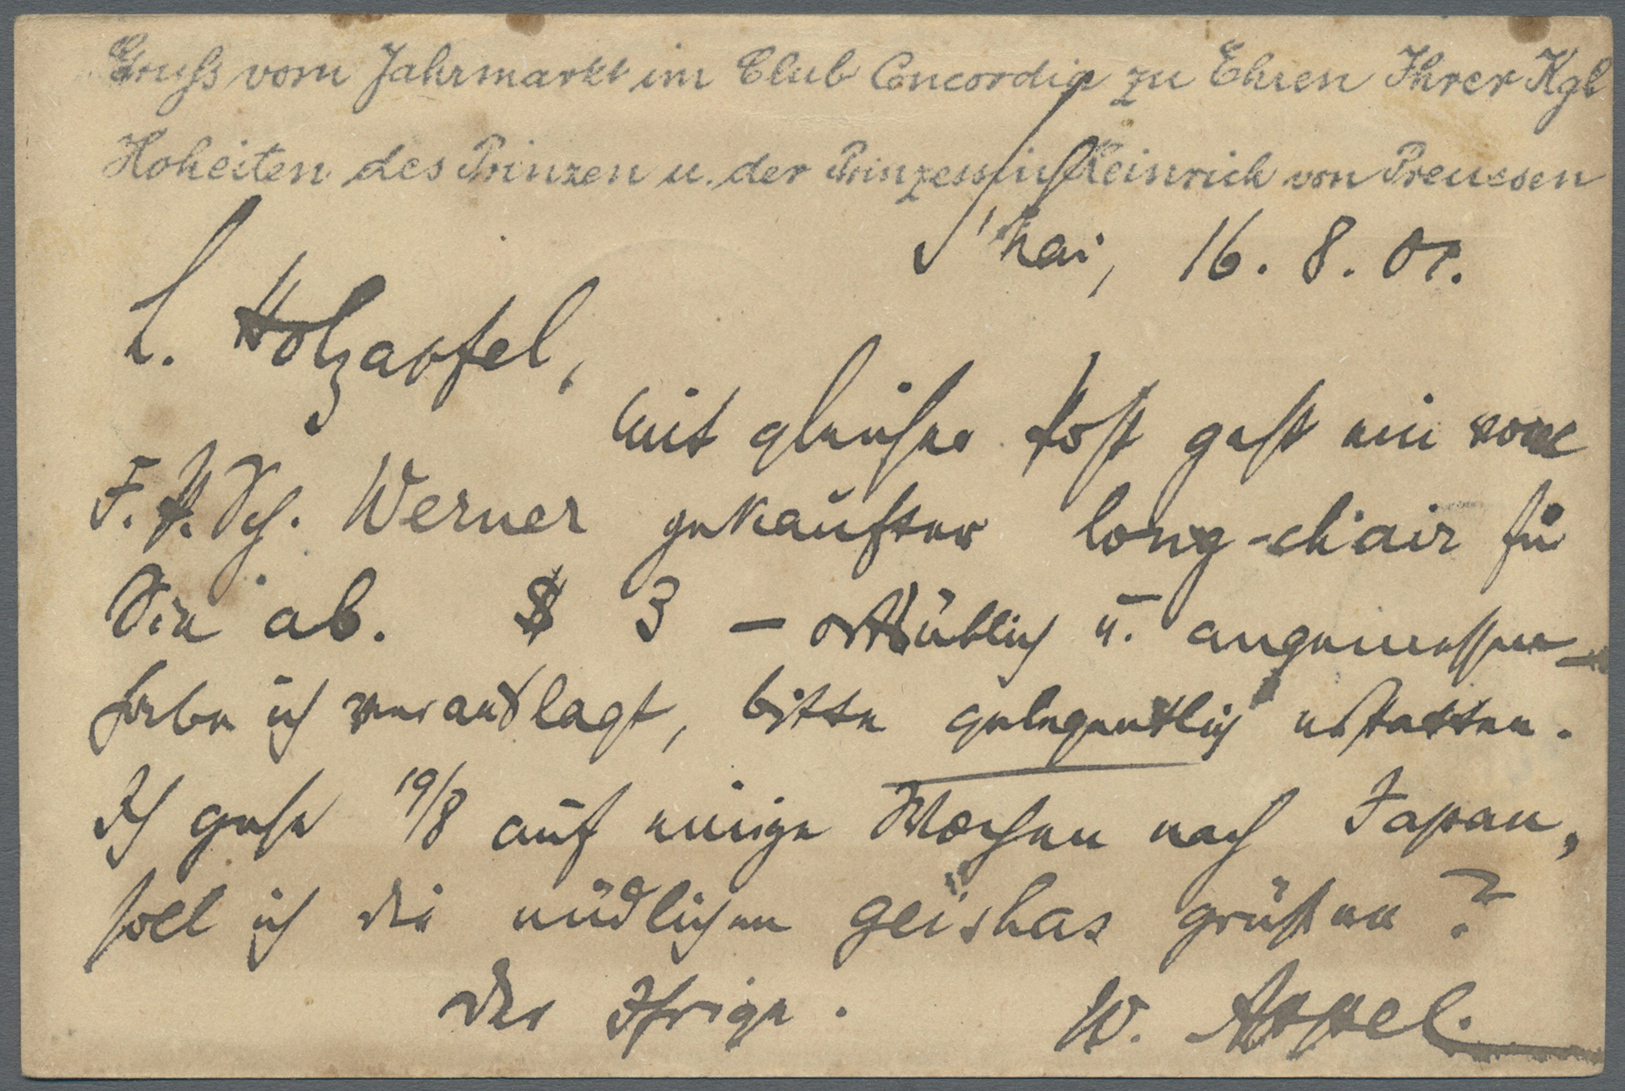 Gruss vom Jahrmarkt im Club Concordia zu Ehren Ihrer Kgl
Hoheiten des Prinzen u. der Prinzessin Heinrich von Preussen
S'hai, 16. 8. 01.
L. Holzapfel,
Mit gleicher Post geht ein vom
F. P. Sch. Werner gekaufter long-chair für
Sie ab. $ 3 – ortsüblich u. angemessen –
habe ich verauslagt, bitte gelegentlich erstatten.
Ich gehe 19/8 auf einige Wochen nach Japan,
soll ich die niedlichen geishas grüßen?
Der Ihrige.
W. Appel.